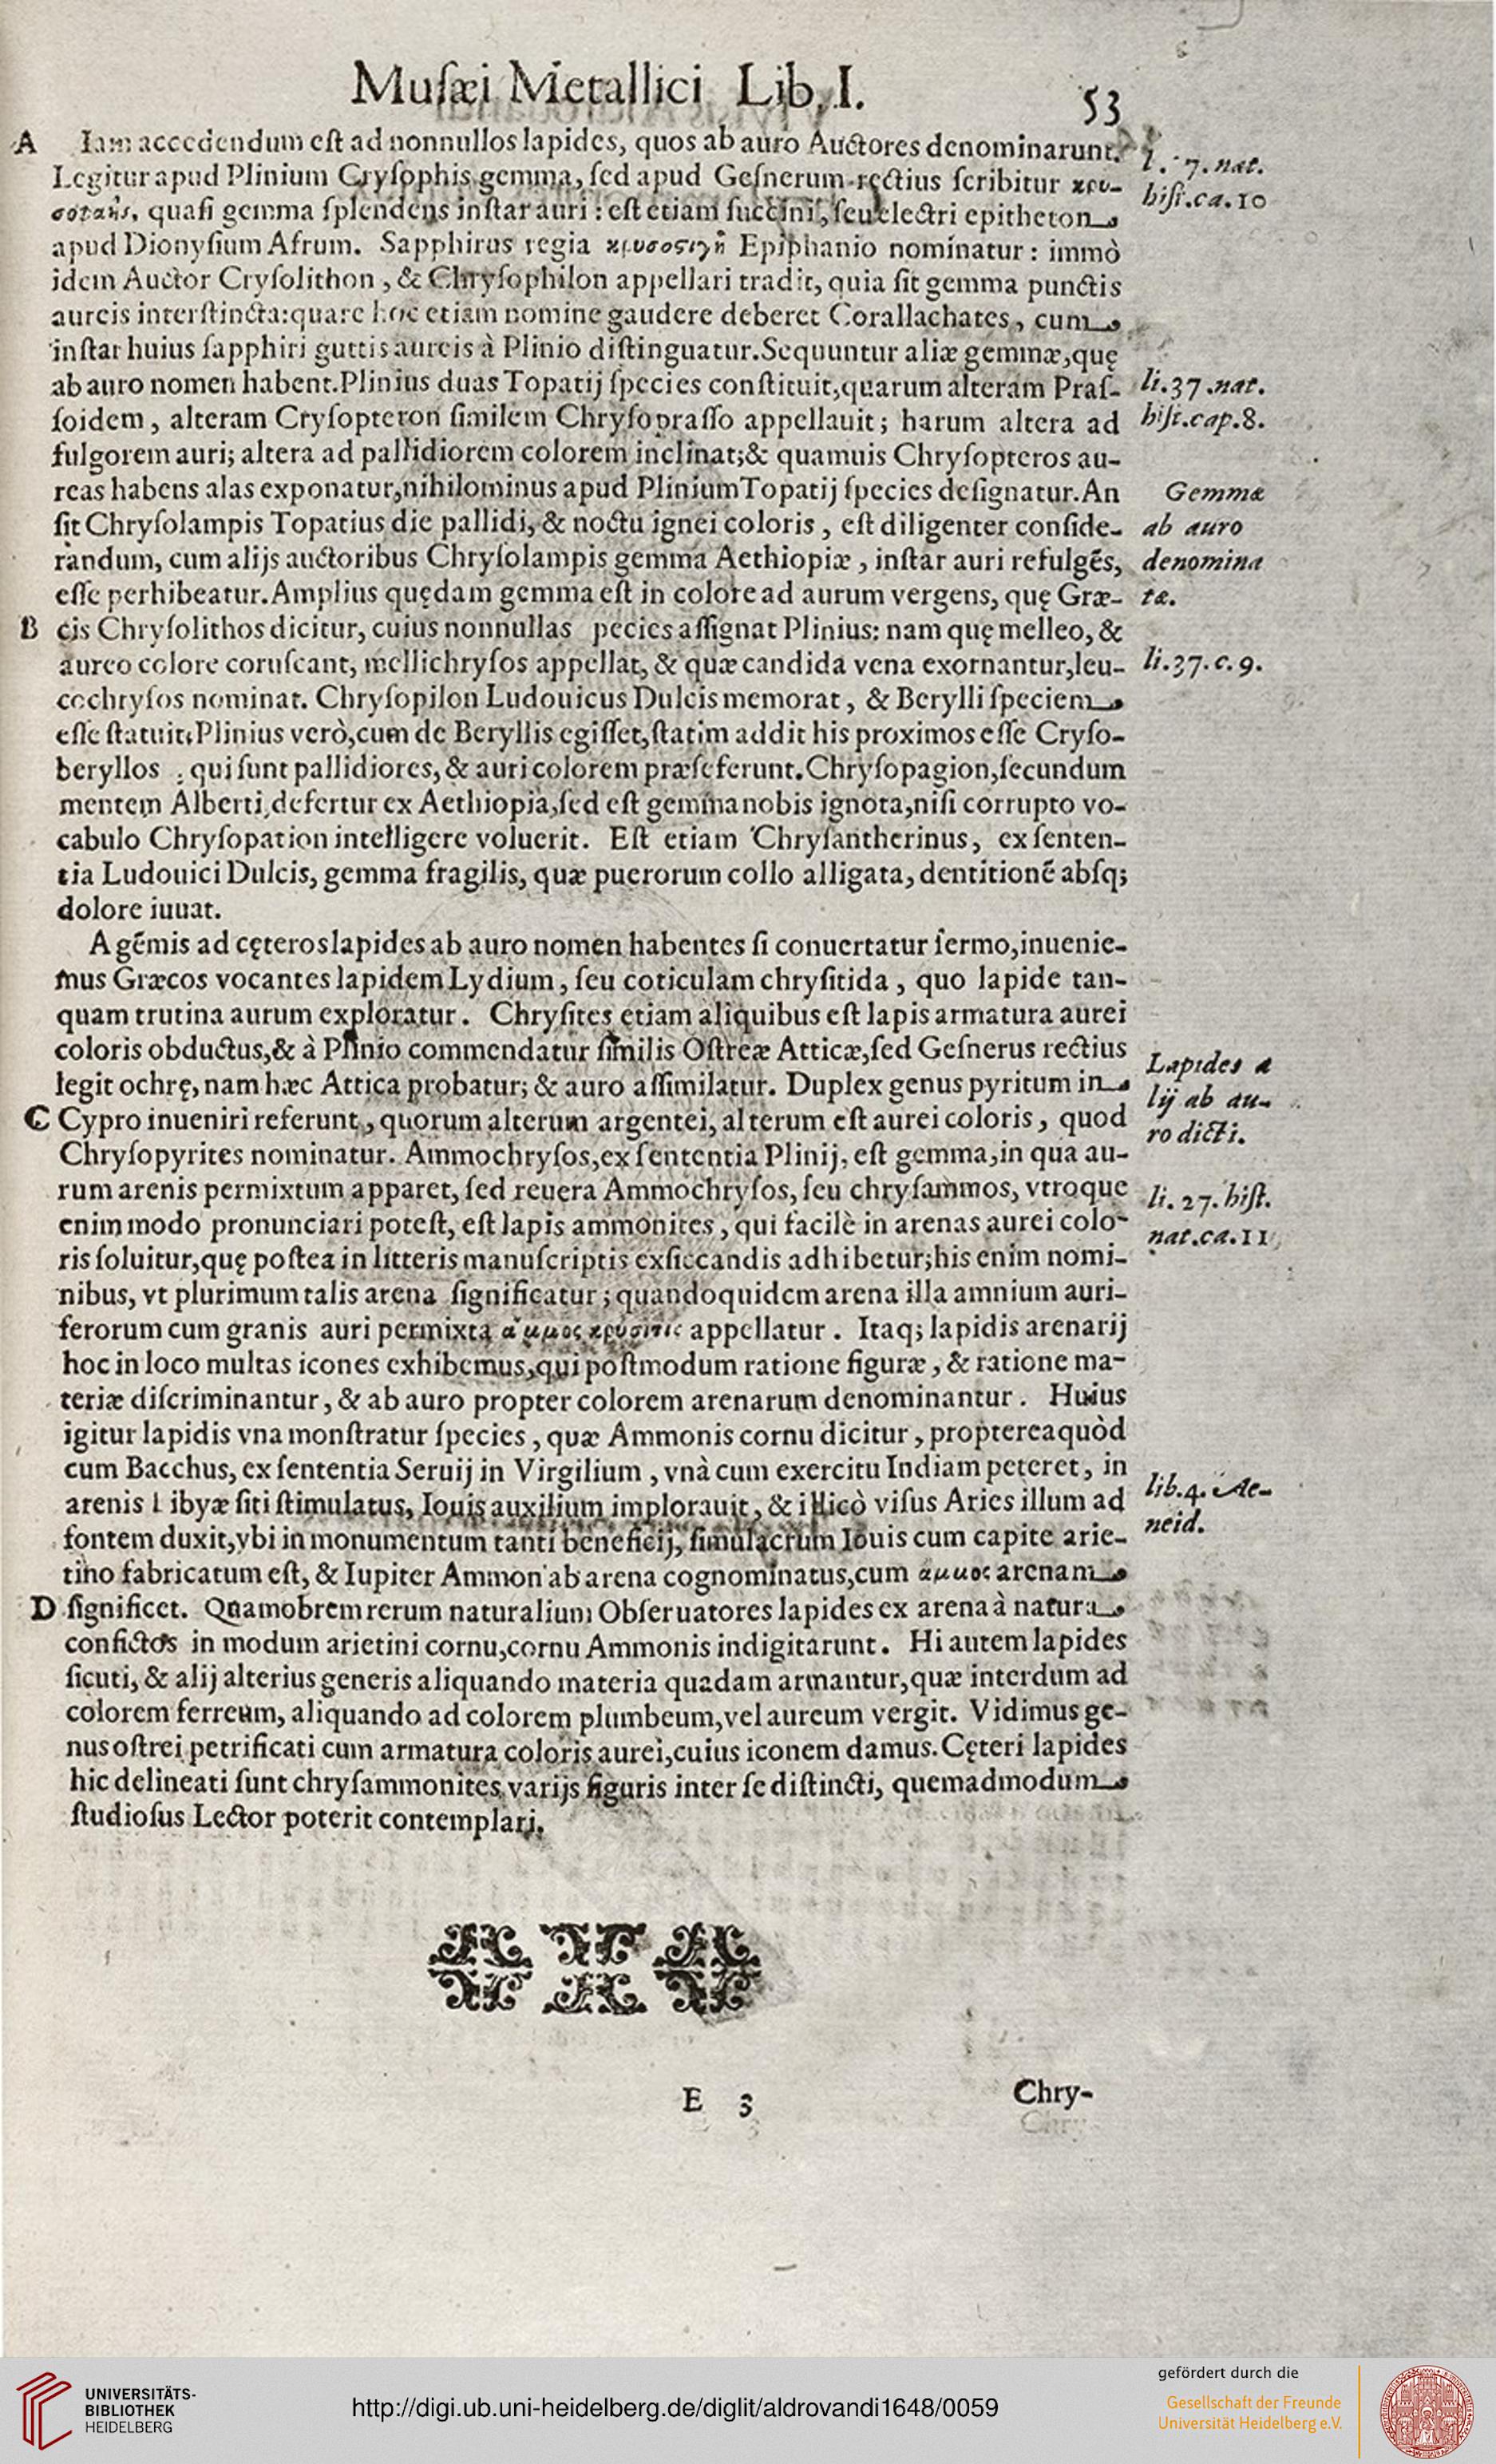 Muſæi Metallici Lib. I.
53
A Iam accedendum eſt ad nonnullos lapides, quos ab auro Auctores denominarunt.
Legitur apud Plinium Cryſophis gemma, ſed apud Geſnerum rectius ſcribitur χρυ-
quaſi gemma ſplendens inſtar auri: eſt etiam ſuccini, ſeu electri epitheton
apud Dionyſium Afrum. Sapphirus regia Epiphanio nominatur: immò
idem Auctor Cryſolithon, & Chryſophilon appellari tradit, quia ſit gemma punctis
aureis interſtincta: quare hoc etiam nomine gaudere deberet Corallachates, cum
inſtar huius ſapphiri guttis aureis à Plinio diſtinguatur. Sequuntur aliæ gemmæ, quę
ab auro nomen habent. Plinius duas Topatij ſpecies conſtituit, quarum alteram Praſ-
ſoidem, alteram Cryſopteron ſimilem Chryſopraſſo appellauit; harum altera ad
fulgorem auri; altera ad pallidiorem colorem inclinat; & quamuis Chryſopteros au-
reas habens alas exponatur, nihilominus apud Plinium Topatij ſpecies deſignatur. An
ſit Chryſolampis Topatius die pallidi, & noctu ignei coloris, eſt diligenter conſide-
randum, cum alijs auctoribus Chryſolampis gemma Aethiopiæ, inſtar auri refulgẽs,
eſſe perhibeatur. Amplius quędam gemma eſt in colore ad aurum vergens, quę Græ-
B cis Chryſolithos dicitur, cuius nonnullas pecies aſſignat Plinius: nam quę melleo, &
aureo colore coruſcant, mellichryſos appellat, & quæ candida vena exornantur, leu-
cochryſos nominat. Chryſopilon Ludouicus Dulcis memorat, & Berylli ſpeciem
eſſe ſtatuit. Plinius verò, cum de Beryllis egiſſet, ſtatim addit his proximos eſſe Cryſo-
beryllos: qui ſunt pallidiores, & auri colorem præſeferunt. Chryſopagion, ſecundum
mentem Alberti, defertur ex Aethiopia, ſed eſt gemma nobis ignota, niſi corrupto vo-
cabulo Chryſopation intelligere voluerit. Eſt etiam Chryſantherinus, ex ſenten-
tia Ludouici Dulcis, gemma fragilis, quæ puerorum collo alligata, dentitionẽ abſq;
dolore iuuat.
A gẽmis ad cęteros lapides ab auro nomen habentes ſi conuertatur ſermo, inuenie-
mus Græcos vocantes lapidem Lydium, ſeu coticulam chryſitida, quo lapide tan-
quam trutina aurum exploratur. Chryſites etiam aliquibus eſt lapis armatura aurei
coloris obductus, & à Plinio commendatur ſimilis Oſtreæ Atticæ, ſed Geſnerus rectius
legit ochrę, nam hæc Attica probatur; & auro aſſimilatur. Duplex genus pyritum in
C Cypro inueniri referunt, quorum alterum argentei, alterum eſt aurei coloris, quod
Chryſopyrites nominatur. Ammochryſos, ex ſententia Plinij, eſt gemma, in qua au-
rum arenis permixtum apparet, ſed reuera Ammochryſos, ſeu chryſammos, vtroque
enim modo pronunciari poteſt, eſt lapis ammonites, qui facilè in arenas aurei colo-
ris ſoluitur, quę poſtea in litteris manuſcriptis exſiccandis adhibetur; his enim nomi-
nibus, vt plurimum talis arena ſignificatur; quandoquidem arena illa amnium auri-
ferorum cum granis auri permixta ἄμμος χρύσιτις appellatur. Itaq; lapidis arenarij
hoc in loco multas icones exhibemus, qui poſtmodum ratione figuræ, & ratione ma-
teriæ diſcriminantur, & ab auro propter colorem arenarum denominantur. Huius
igitur lapidis vna monſtratur ſpecies, quæ Ammonis cornu dicitur, proptereaquòd
cum Bacchus, ex ſententia Seruij in Virgilium, vnà cum exercitu Indiam peteret, in
arenis Libyæ ſiti ſtimulatus, Iouis auxilium implorauit, & illicò viſus Aries illum ad
fontem duxit, vbi in monumentum tanti beneficij, ſimulacrum Iouis cum capite arie-
tino fabricatum eſt, & Iupiter Ammon ab arena cognominatus, cum ἄμμος arenam
D ſignificet. Quamobrem rerum naturalium Obſeruatores lapides ex arena à natura
confictos in modum arietini cornu, cornu Ammonis indigitarunt. Hi autem lapides
ſicuti, & alij alterius generis aliquando materia quadam armantur, quæ interdum ad
colorem ferreum, aliquando ad colorem plumbeum, vel aureum vergit. Vidimus ge-
nus oſtrei petrificati cum armatura coloris aurei, cuius iconem damus. Cęteri lapides
hic delineati ſunt chryſammonites varijs figuris inter ſe diſtincti, quemadmodum
ſtudioſus Lector poterit contemplari.
l. 7. nat.
hiſt. ca. 10
li. 37. nat.
hiſt. cap. 8.
Gemmæ
ab auro
denomina
tæ.
li. 37. c. 9.
Lapides a
lij ab au-
ro dicti.
li. 27. hiſt.
nat. ca. 11
lib. 4. Ae-
neid.
E 3
Chry-
UNIVERSITÄTS-
BIBLIOTHEK
HEIDELBERG
http://digi.ub.uni-heidelberg.de/diglit/aldrovandi1648/0059
gefördert durch die
Gesellschaft der Freunde
Universität Heidelberg e.V.